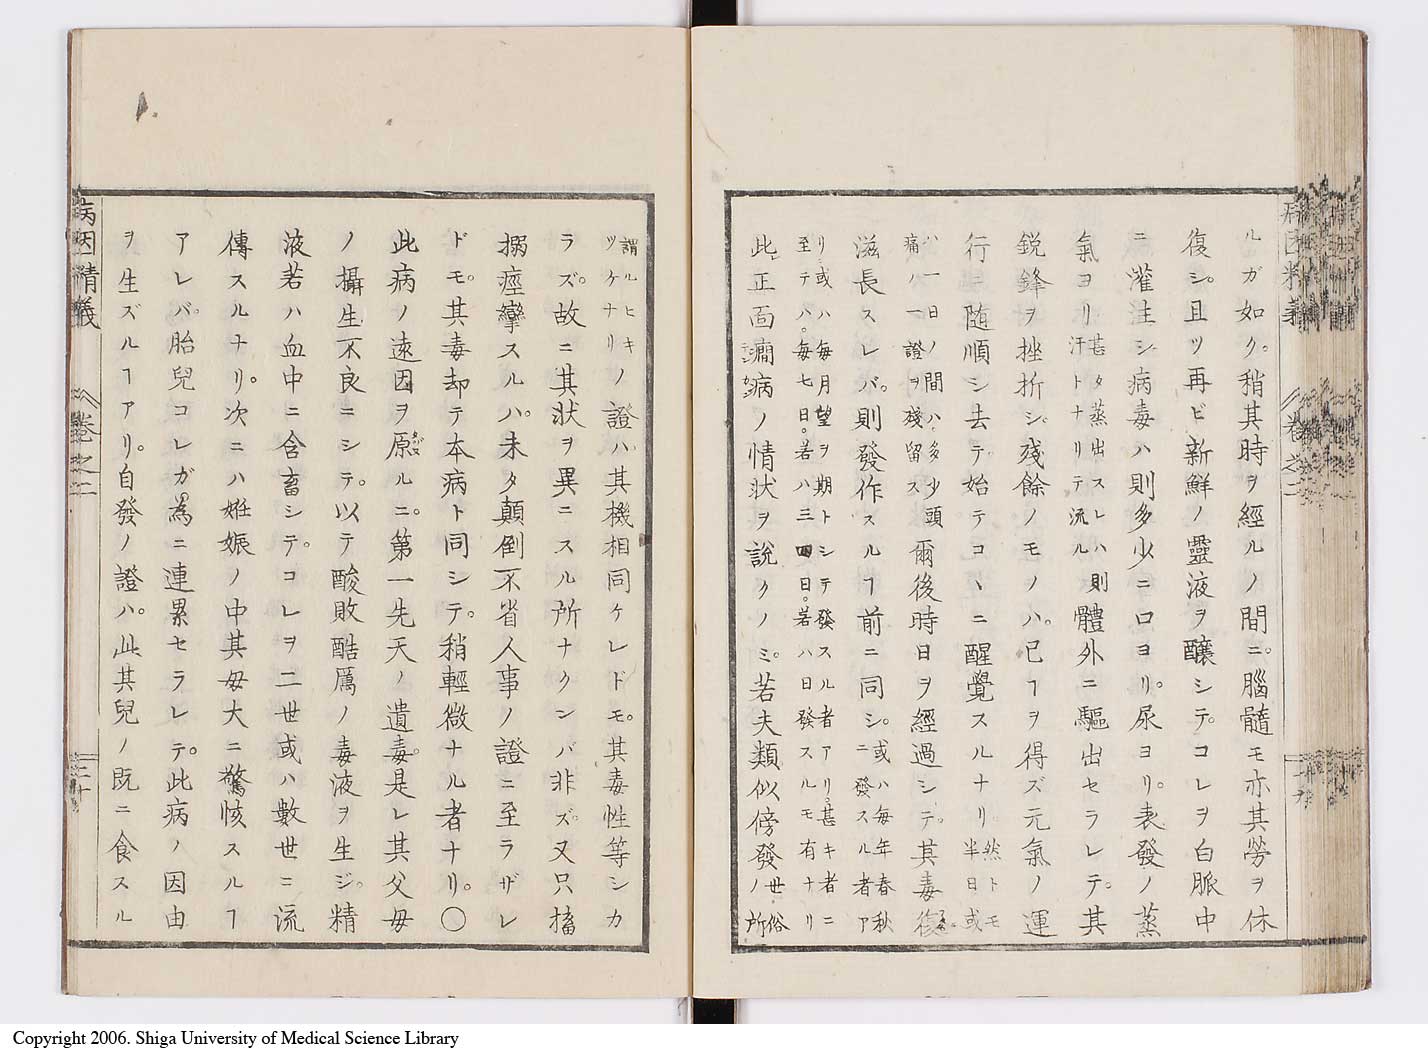 ルガ如ク。稍其時ヲ經ルノ間ニ。腦髓モ亦其勞ヲ休
復シ。且ツ再ビ新鮮ノ靈液ヲ釀シテ。コレヲ白脈中
ニ灌注シ病毒ハ則多少ニロヨリ。尿ヨリ。表發ノ蒸
氣ヨリ甚タ蒸出スレハ則汗トナリテ流ル體外ニ驅出セラレテ。其
鋭鋒ヲ挫折シ。殘餘ノモノハ。已ヿヲ得ズ元氣ノ運
行ニ随順シ去テ。始テコヽニ醒覺スルナリ。然トモ半日或
ハ一日ノ間ハ。多少頭痛ハ一證ヲ殘留ス爾後時日ヲ經過シテ。其毒復
滋長スレバ。則發作スルヿ前ニ同シ。或ハ毎年春秋ニ發スル者ア
リ或ハ毎月望ヲ期トシテ發スル者アリ。甚キ者ニ至テハ。毎七日。若ハ三四日。若ハ日發スルモ有ナリ
此正面癇病ノ情狀ヲ說クノミ。若夫類似傍發ノ世俗所
謂ルヒキツケナリノ證ハ其機相同ケレドモ。其毒性等シカ
ラズ。故ニ其狀ヲ異ニスル所ナクンバ非ズ。又只搐
搦痙攣スルハ。未タ顛倒不省人事ノ證ニ至ラザレ
ドモ。其毒却テ本病ト同シテ。稍輕微ナル者ナリ。〇
此病ノ遠因ヲ原ルニ。第一先天ノ遺毒。是レ其父毋
ノ攝生不良ニシテ。以テ酸敗酷厲ノ毒液ヲ生ジ。精
液若ハ血中ニ含畜シテ。コレヲ二世或ハ數世ニ流
傳スルナリ。次ニハ姙娠ノ中其毋大ニ驚愕スルヿ
アレバ。胎兒コレガ為ニ連累セラレテ。此病ノ因由
ヲ生ズルヿアリ。自發ノ證ハ。此其兒ノ既ニ食スル
病因精義
卷之二
二十
Copyright 2006. Shiga University of Medical Science Library